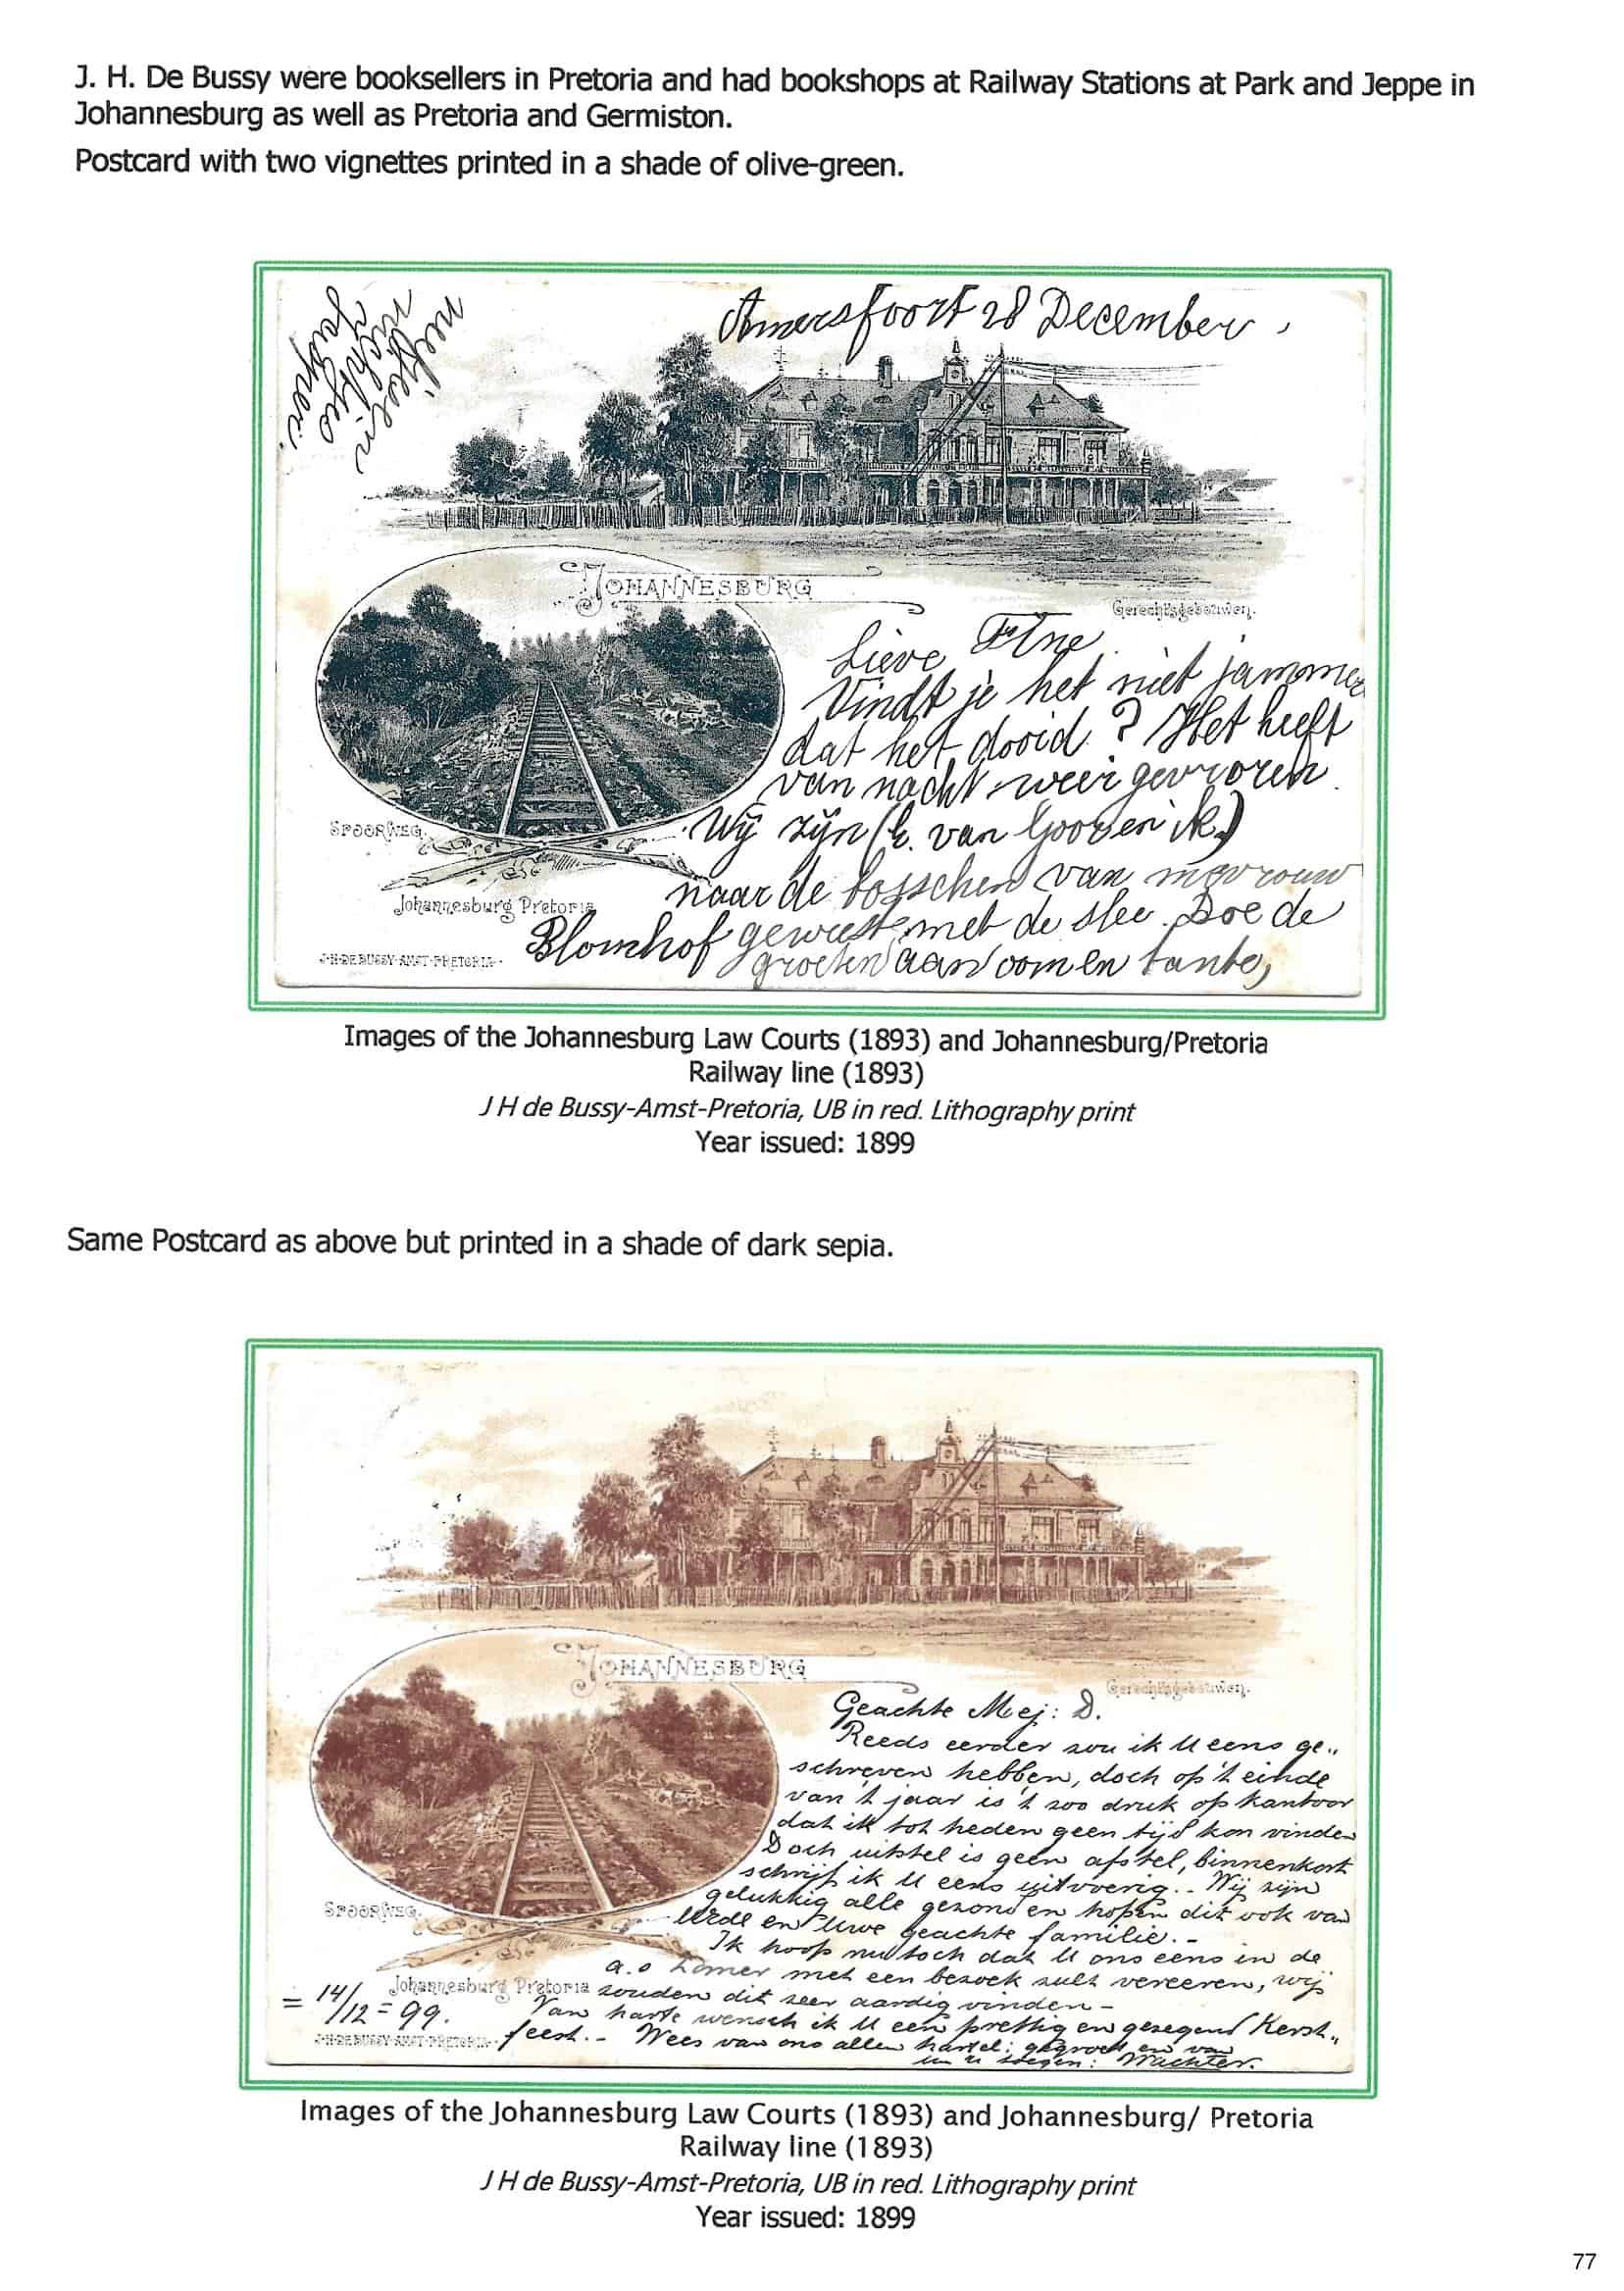 J. H. De Bussy were booksellers in Pretoria and had bookshops at Railway Stations at Park and Jeppe in
Johannesburg as well as Pretoria and Germiston.
Postcard with two vignettes printed in a shade of olive-green.
Amersfoort 28 December,
JOHANNESBURG
Gerechtsgebouwen.
Lieve
Vindt je het niet jammer
dat het dooid? Het heeft
van nacht weer gevroren.
Wij zijn (E. van Goor en ik)
naar de bosschen van mevrouw
Blomhof geweest met de slee. Doe de
groeten aan oom en tante,
SPOORWEG.
Johannesburg Pretoria
J·H·DE BUSSY·AMST·PRETORIA·
Images of the Johannesburg Law Courts (1893) and Johannesburg/Pretoria
Railway line (1893)
J H de Bussy-Amst-Pretoria, UB in red. Lithography print
Year issued: 1899
Same Postcard as above but printed in a shade of dark sepia.
JOHANNESBURG
Gerechtsgebouwen.
Geachte Mej: D.
Reeds eerder zou ik U eens ge„
schreven hebben, doch op 't einde
van 't jaar is 't zoo druk op kantoor
dat ik tot heden geen tijd kon vinden
Doch uitstel is geen afstel, binnenkort
schrijf ik U eens uitvoerig.. Wij zijn
gelukkig alle gezond en hopen dit ook van
UEdl en Uwe geachte familie.-
Ik hoop nu toch dat U ons eens in de
a.s Zomer met een bezoek zult vereeren, wij
zouden dit zeer aardig vinden-
Van harte wensch ik U een prettig en gezegend Kerst„
feest.- Wees van ons allen hartel: gegroet en van
Wachter.
SPOORWEG.
Johannesburg Pretoria
= 14/12 = 99.
J·H·DE BUSSY·AMST·PRETORIA·
Images of the Johannesburg Law Courts (1893) and Johannesburg/ Pretoria
Railway line (1893)
J H de Bussy-Amst-Pretoria, UB in red. Lithography print
Year issued: 1899
77